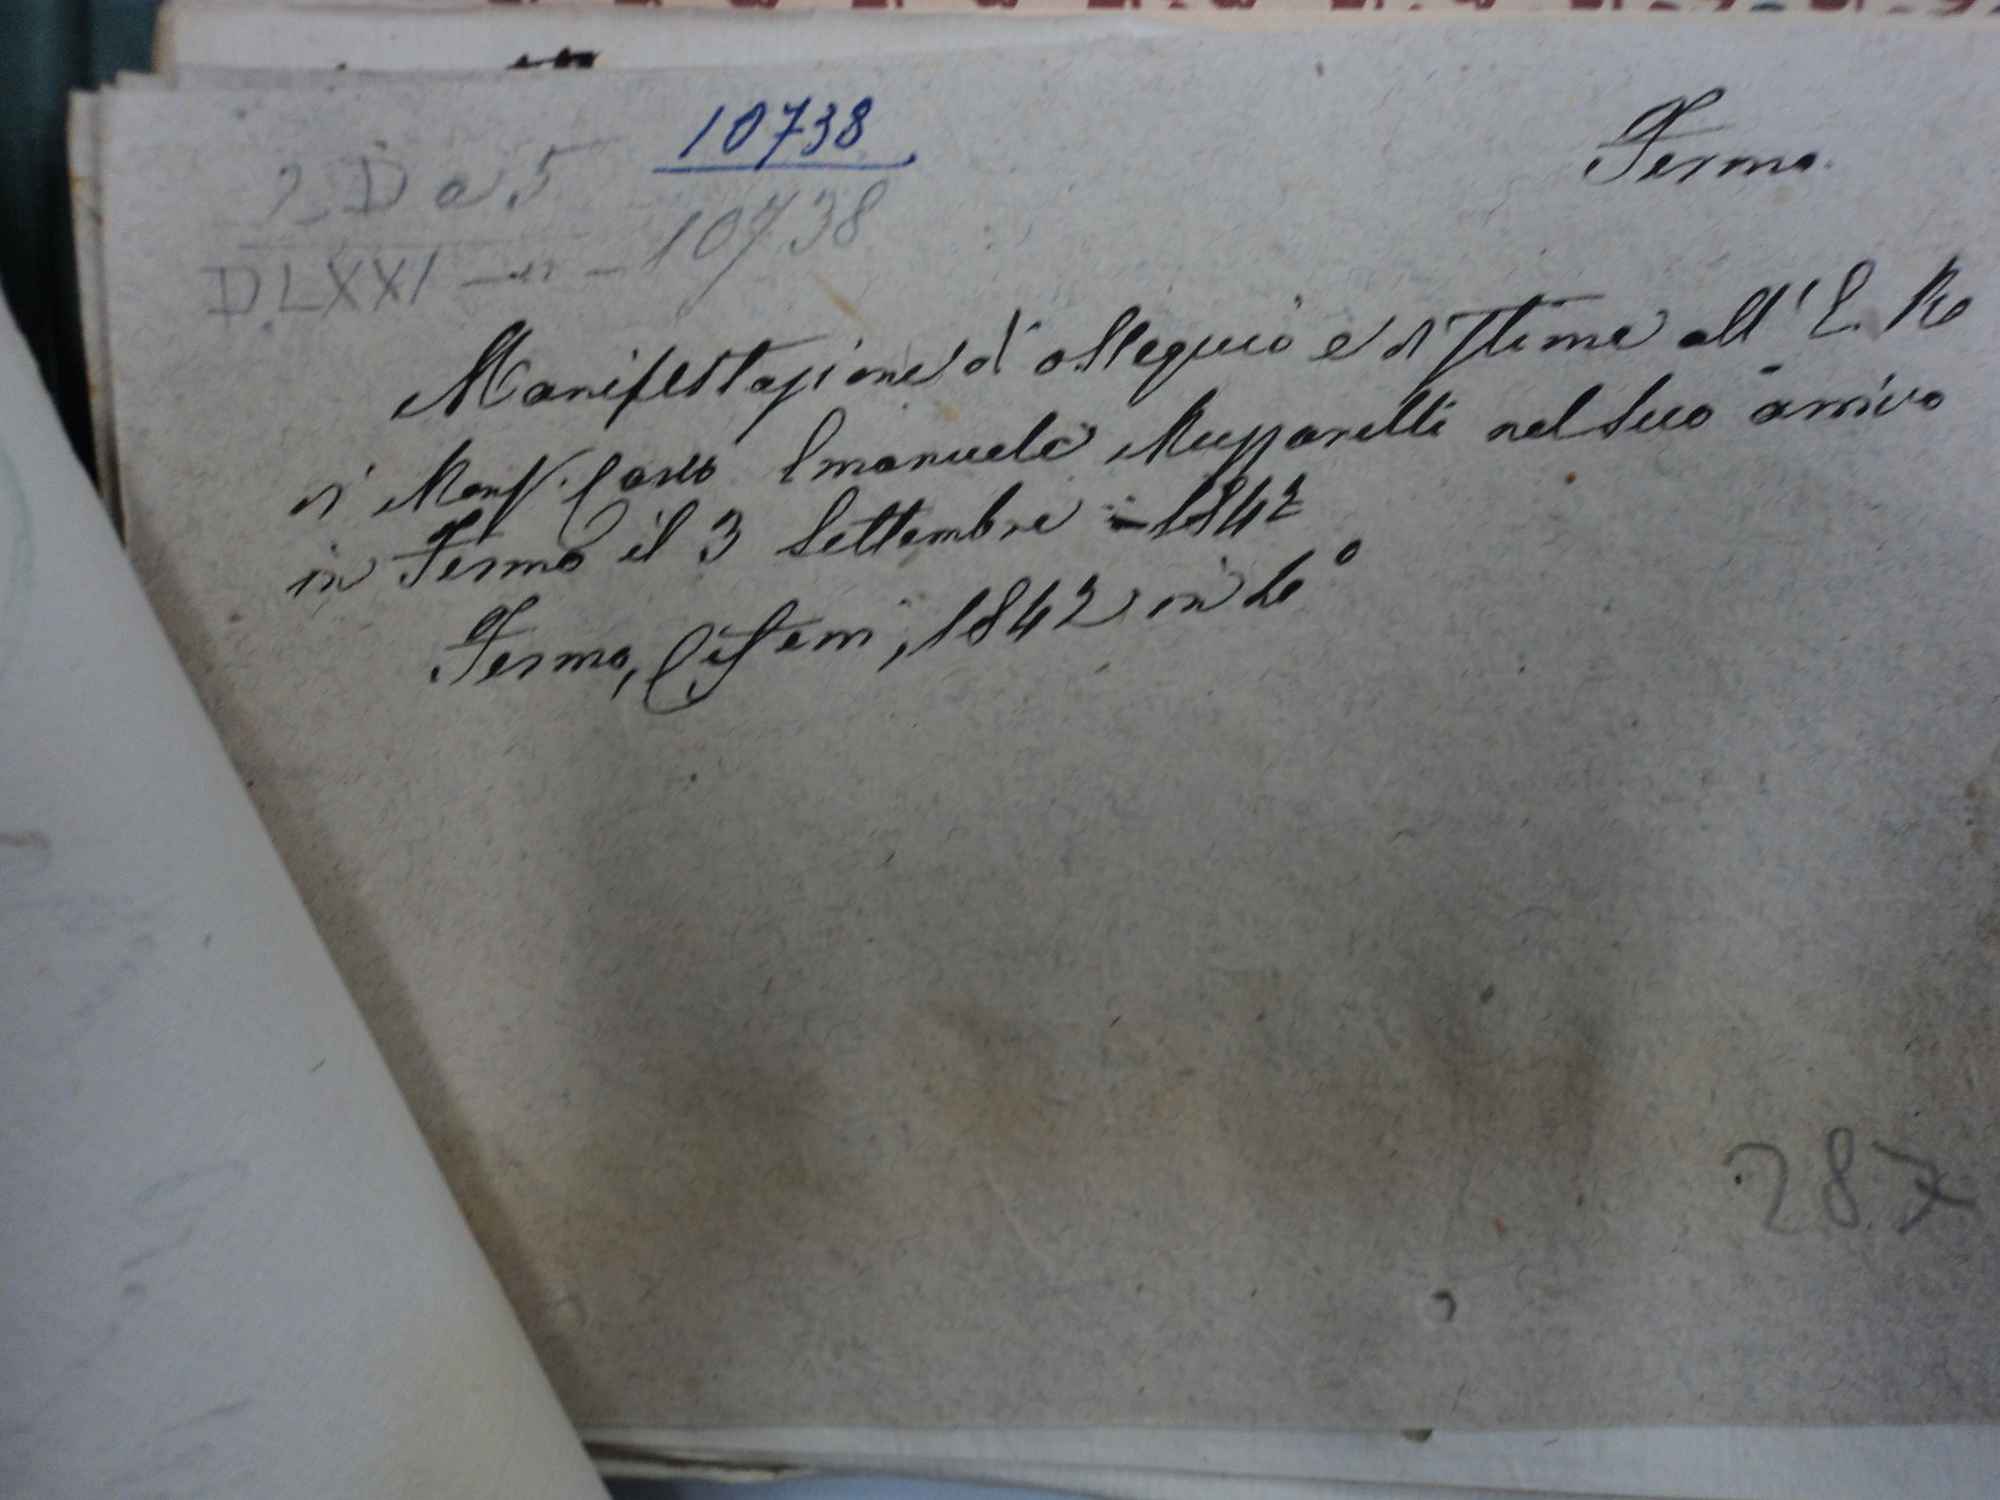 10738
Fermo.
2 D a 5
DLXXI — n – 10738
Manifestazione d' ossequio e di stima all' E. Re
di Mons. Carlo Emanuele Muzzarelli nel suo arrivo
in Fermo il 3 Settembre 1842
Fermo, Ciferri, 1842 in 4°
287